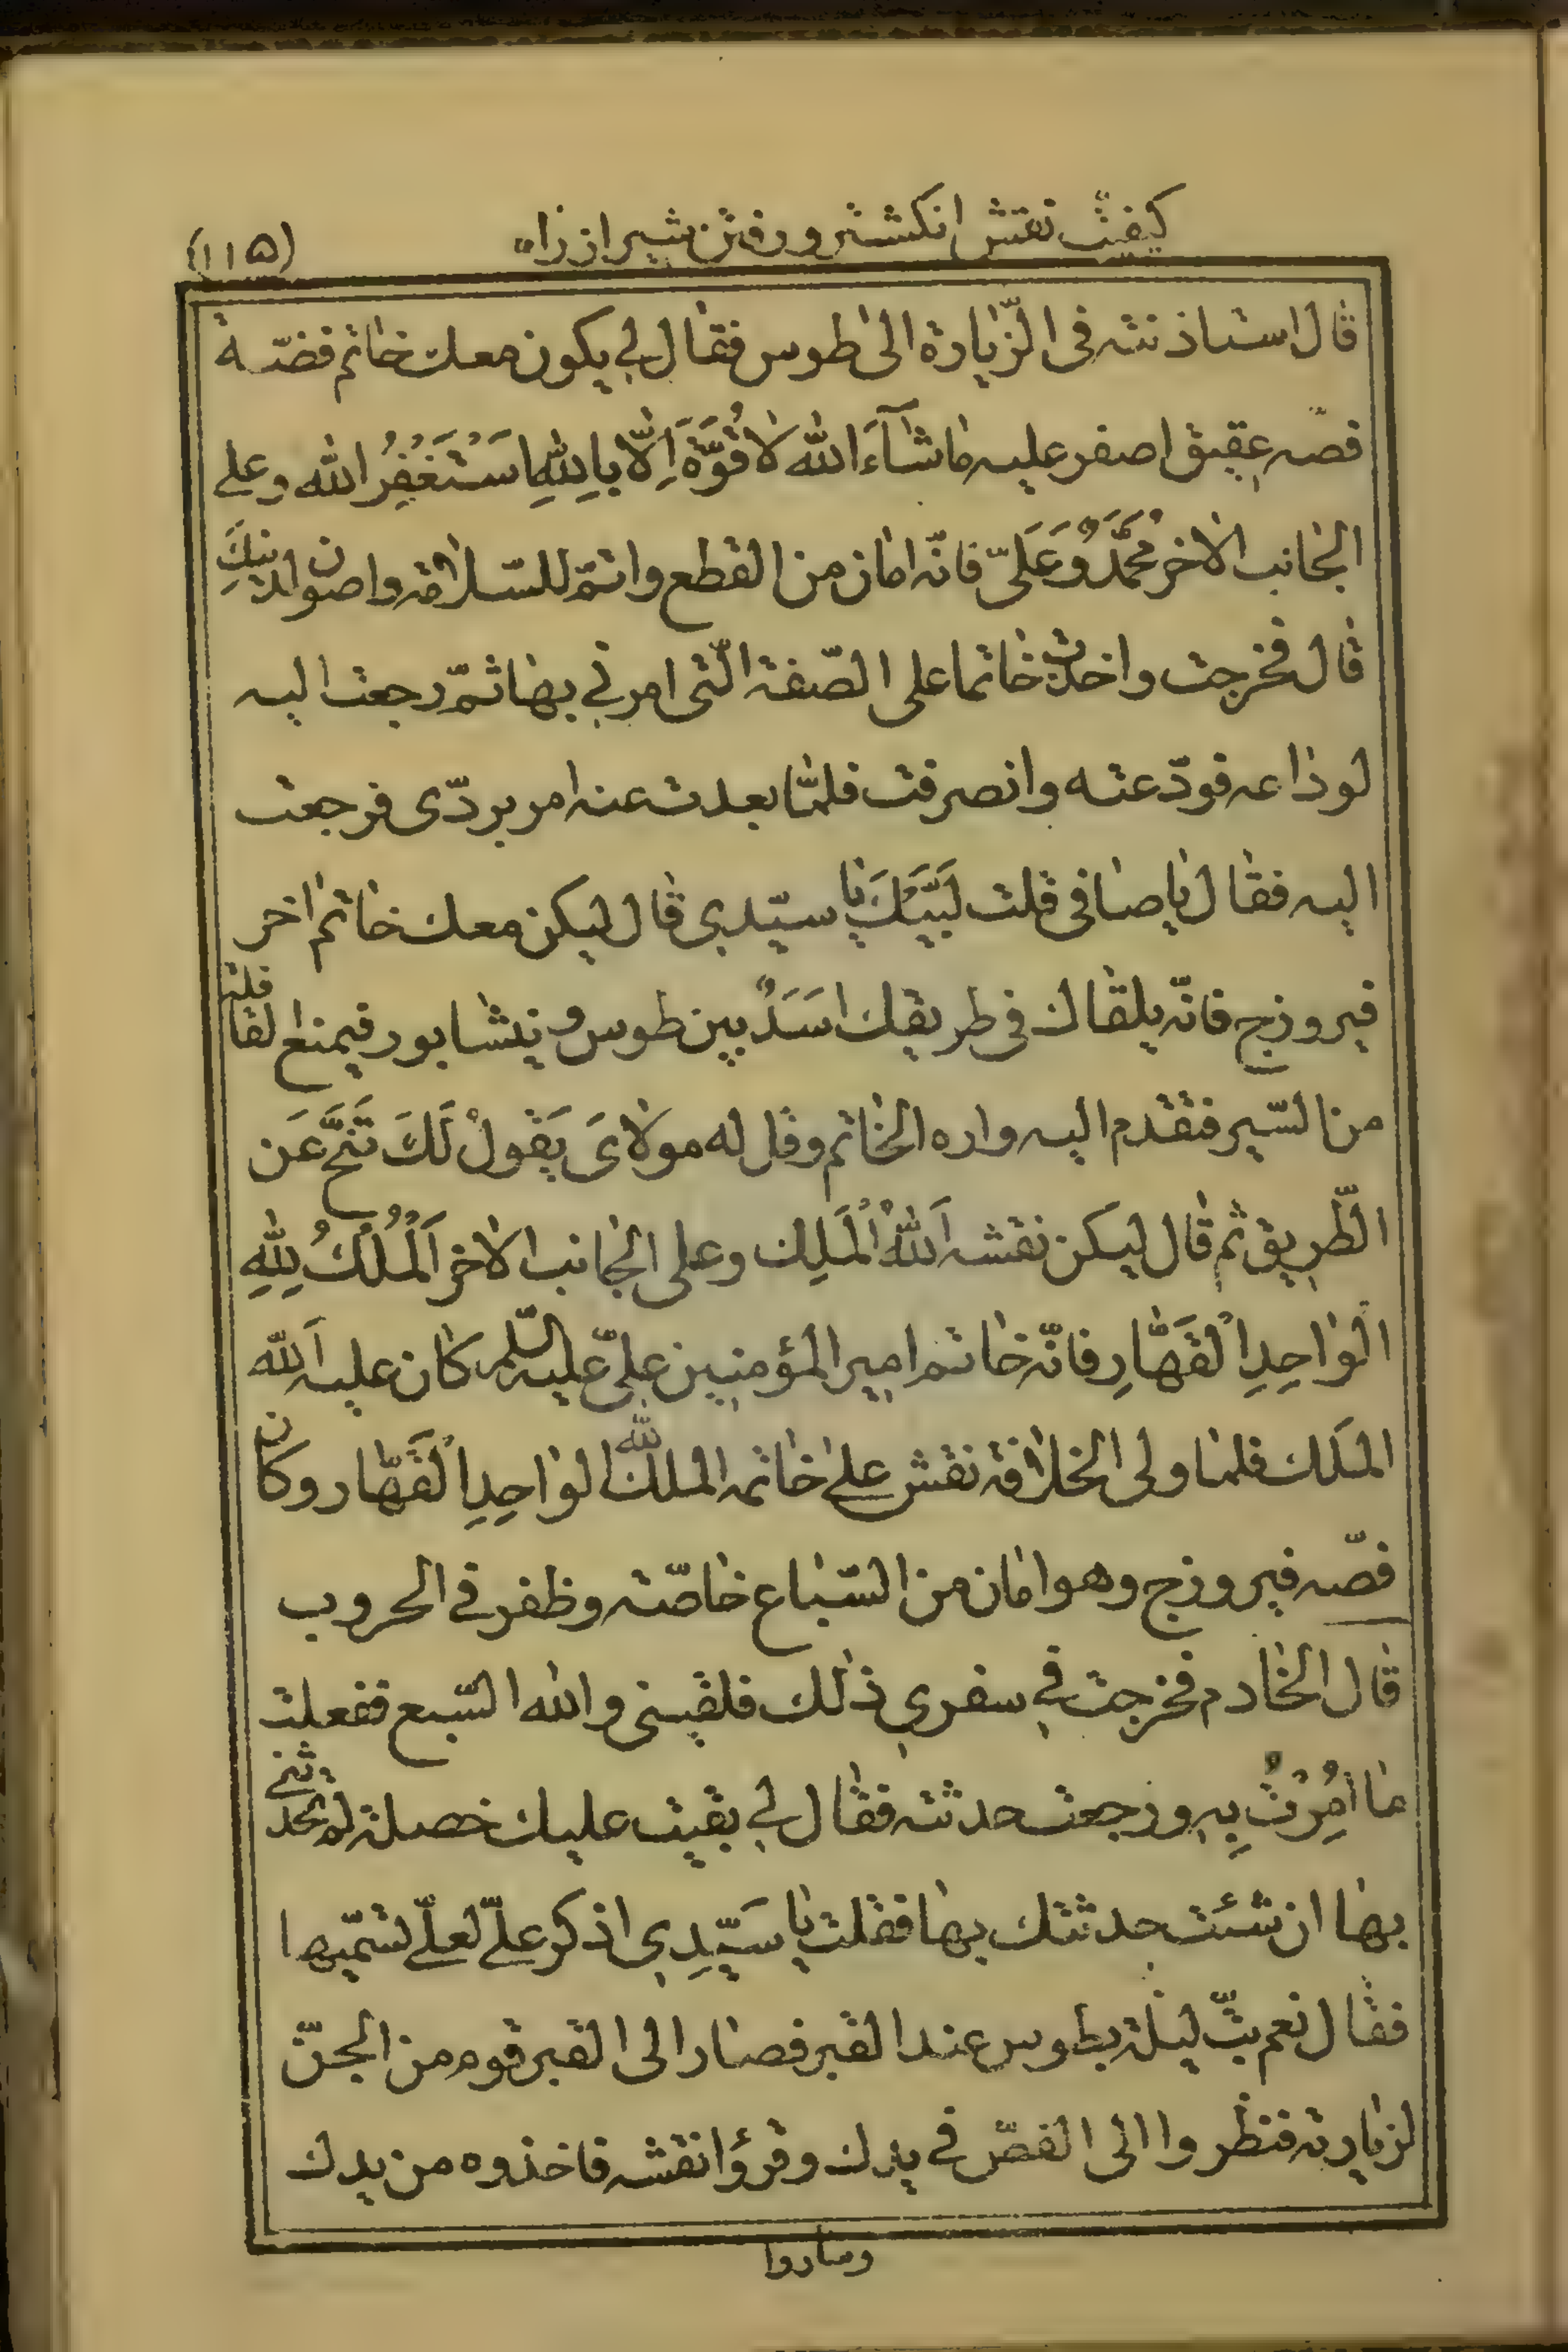 كيفيت نقش انگشتر و رفتن شير از راه
(١١۵)
قال استاذنته فى الزّيارة الى طوس فقال لي يكون معك خاتم فضّة
فصّه عقيق اصفر عليه ما شآءَ الله لا قُوَّةَ اِلّا بِاللهِ اَسْتَغْفِرُ الله وعلى
الجانب الاخر مُحَمَّدٌ وَعَلَىّ فانّه امان من القطع واتمّ للسّلامة واصون لدينك
قال فخرجت واخذت خاتما على الصّفة الّتى امرني بها ثمّ رجعت اليه
لوداعه فودّعته وانصرفت فلمّا بعدت عنه امر بردّى فرجعت
اليه فقال يا صافى قلت لَبَّيْكَ يا سيّدي قال ليكن معك خاتم اخر
فيروزج فانّه يلقاك فى طريقك اَسَدٌ بين طوس و نيشابور فيمنع القافلة
من السّير فتقدم اليه واره الخاتم وقل له مولاىَ يَقولْ لَكَ تَنَحَّ عَن
الطّريق ثم قال ليكن نقشه اَللهُ الْمَلِك وعلى الجانب الاخر اَلْمُلْكُ لِلّهِ
الْواحِدِ الْقَهّارِ فانّه خاتم امير المؤمنين علىّ عليه السّلم كان عليه اَلله
المَلك فلما ولى الخلافة نقش على خاتمه الملك لله الواحِدِ الْقَهّار وكان
فصّه فيروزج وهو امان من السّباع خاصّة وظفر فى الحروب
قال الخادم فخرجت فى سفري ذلك فلقينى والله السّبع ففعلت
ما اُمِرْتُ بِه ورجعت حدثته فقال لي بقيت عليك خصلة لم تحدثنى
بها ان شئت حدثتك بها فقلت يا سَيِّدي اذكر علىّ لعلّي لسّميها
فقال نعم بتّ ليلة بطوس عند القبر فصار الى القبر قوم من الجنّ
لزيارته فنظروا الى الفصّ في يدك وقرؤا نقشه فاخذوه من يدك
وصاروا